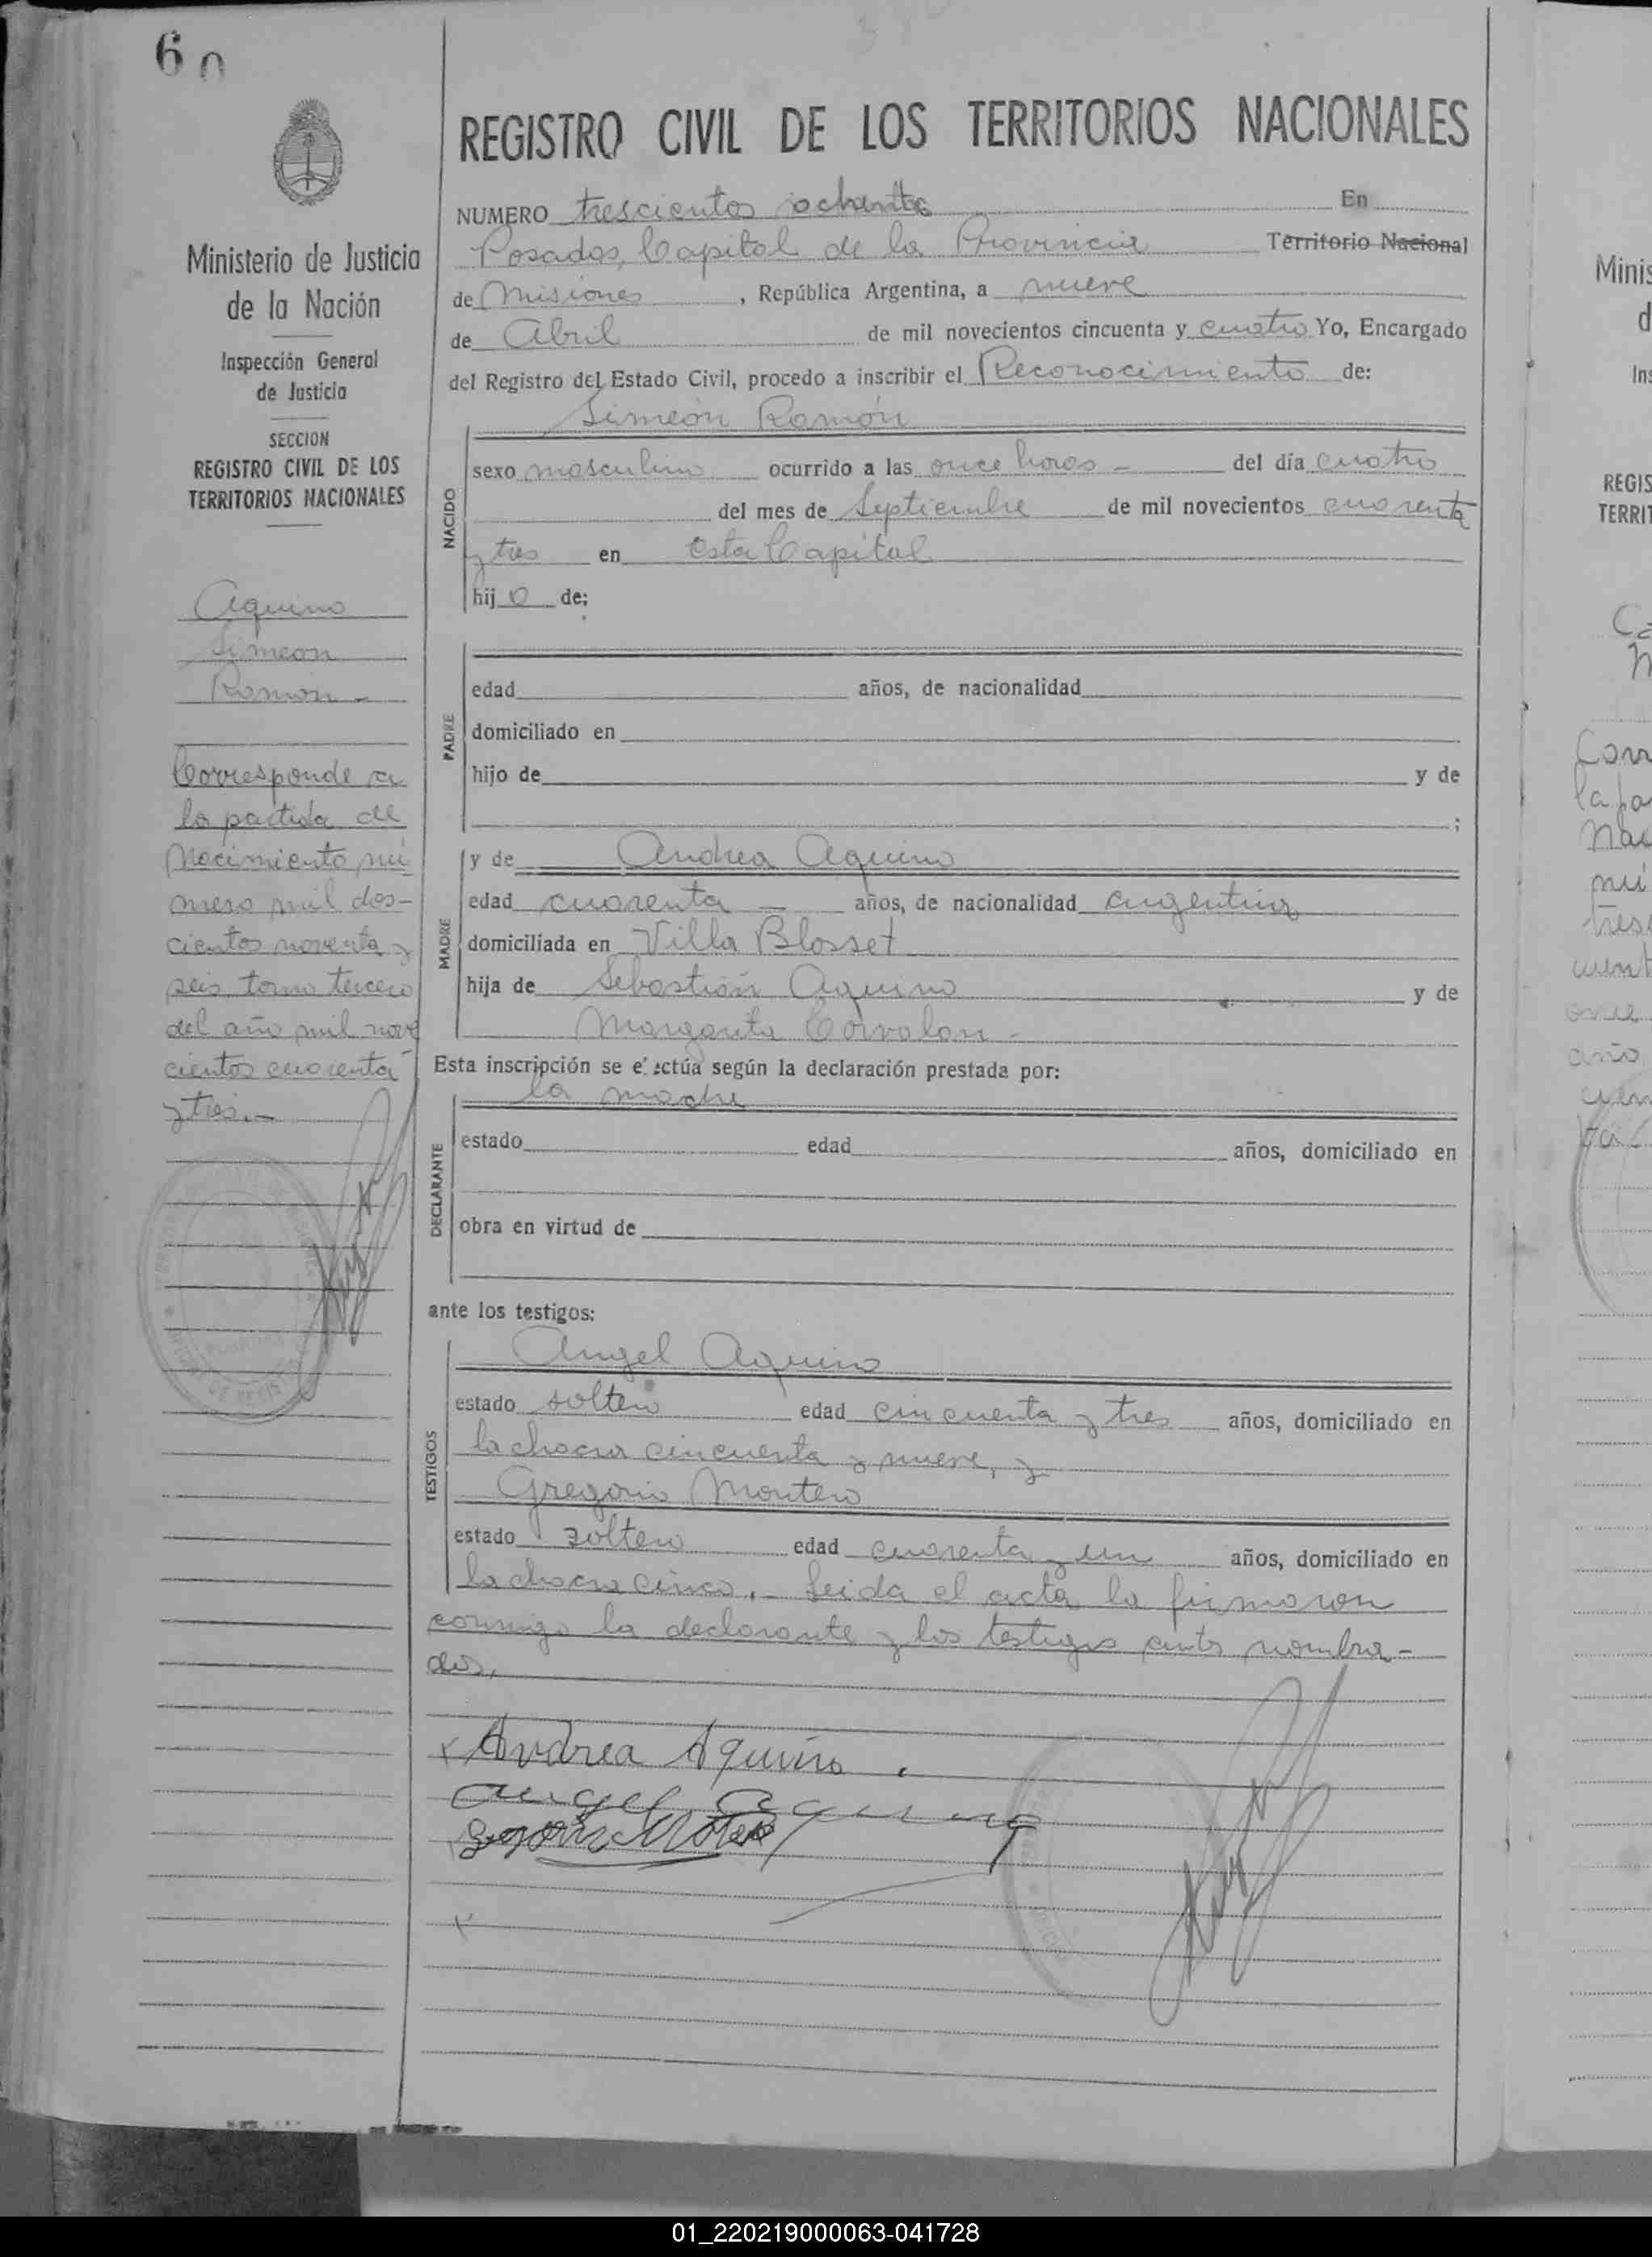 60
REGISTRO CIVIL DE LOS TERRITORIOS NACIONALES
Ministerio de Justicia
de la Nación
Inspección General
de Justicia
SECCION
REGISTRO CIVIL DE LOS
TERRITORIOS NACIONALES
Aquino
Simeon
Ramón -
Corresponde a
la partida de
Nacimiento nú
mero mil dos-
cientos noventa y
seis tomo tercero
del año mil nove
cientos cuarenta
y tres.-
NUMERO trescientos ochenta En
Posadas, Capital de la Provincia Territorio Nacional
de Misiones, República Argentina, a nueve
de Abril de mil novecientos cincuenta y cuatro Yo, Encargado
del Registro del Estado Civil, procedo a inscribir el Reconocimiento de:
Simeón Ramón
NACIDO
sexo masculino ocurrido a las once horas - del día cuatro
del mes de Septiembre de mil novecientos cuarenta
y tres en esta Capital
hijo de:
PADRE
edad años, de nacionalidad
domiciliado en
hijo de y de
;
MADRE
y de Andrea Aquino
edad cuarenta - años, de nacionalidad argentina
domiciliada en Villa Blosset
hija de Sebastián Aquino y de
Margarita Corvalan -
Esta inscripción se efectúa según la declaración prestada por:
la madre
DECLARANTE
estado edad años, domiciliado en
obra en virtud de
ante los testigos:
TESTIGOS
Angel Aquino
estado soltero edad cincuenta y tres años, domiciliado en
la chacra cincuenta y nueve, y
Gregorio Montero
estado soltero edad cuarenta y un años, domiciliado en
la chacra cinco.- Leida el acta la firmaron
conmigo la declarante y los testigos ants nombra-
dos,
x Andrea Aquino.
Angel Aquino
01_220219000063-041728